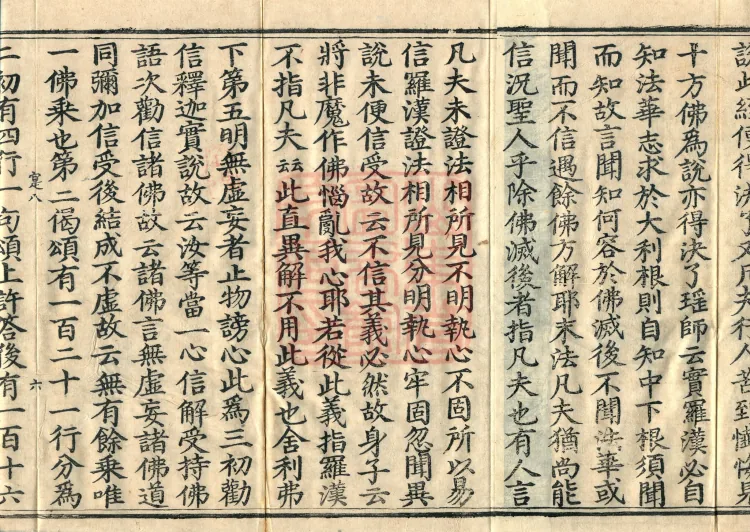 說此經便得決
十方佛為說亦得決了瑶師云實羅漢必自
知法華志求於大利根則自知中下根須聞
而知故言聞知何容於佛滅後不聞法華或
聞而不信遇餘佛方解耶末法凡夫猶尚能
信況聖人乎除佛滅後者指凡夫也有人言
凡夫未證法相所見不明執心不固所以易
信羅漢證法相所見分明執心牢固忽聞異
說未便信受故云不信其義必然故身子云
將非魔作佛惱亂我心耶若從此義指羅漢
不指凡夫云云此直異解不用此義也舍利弗
下第五明無虛妄者止物謗心此為三初勸
信釋迦實說故云汝等當一心信解受持佛
語次勸信諸佛故云諸佛言無虛妄諸佛道
同彌加信受後結成不虛故云無有餘乘唯
一佛乘也第二偈頌有一百二十一行分為
寔八 六
二初有四行一句頌上許荅後有一百十六